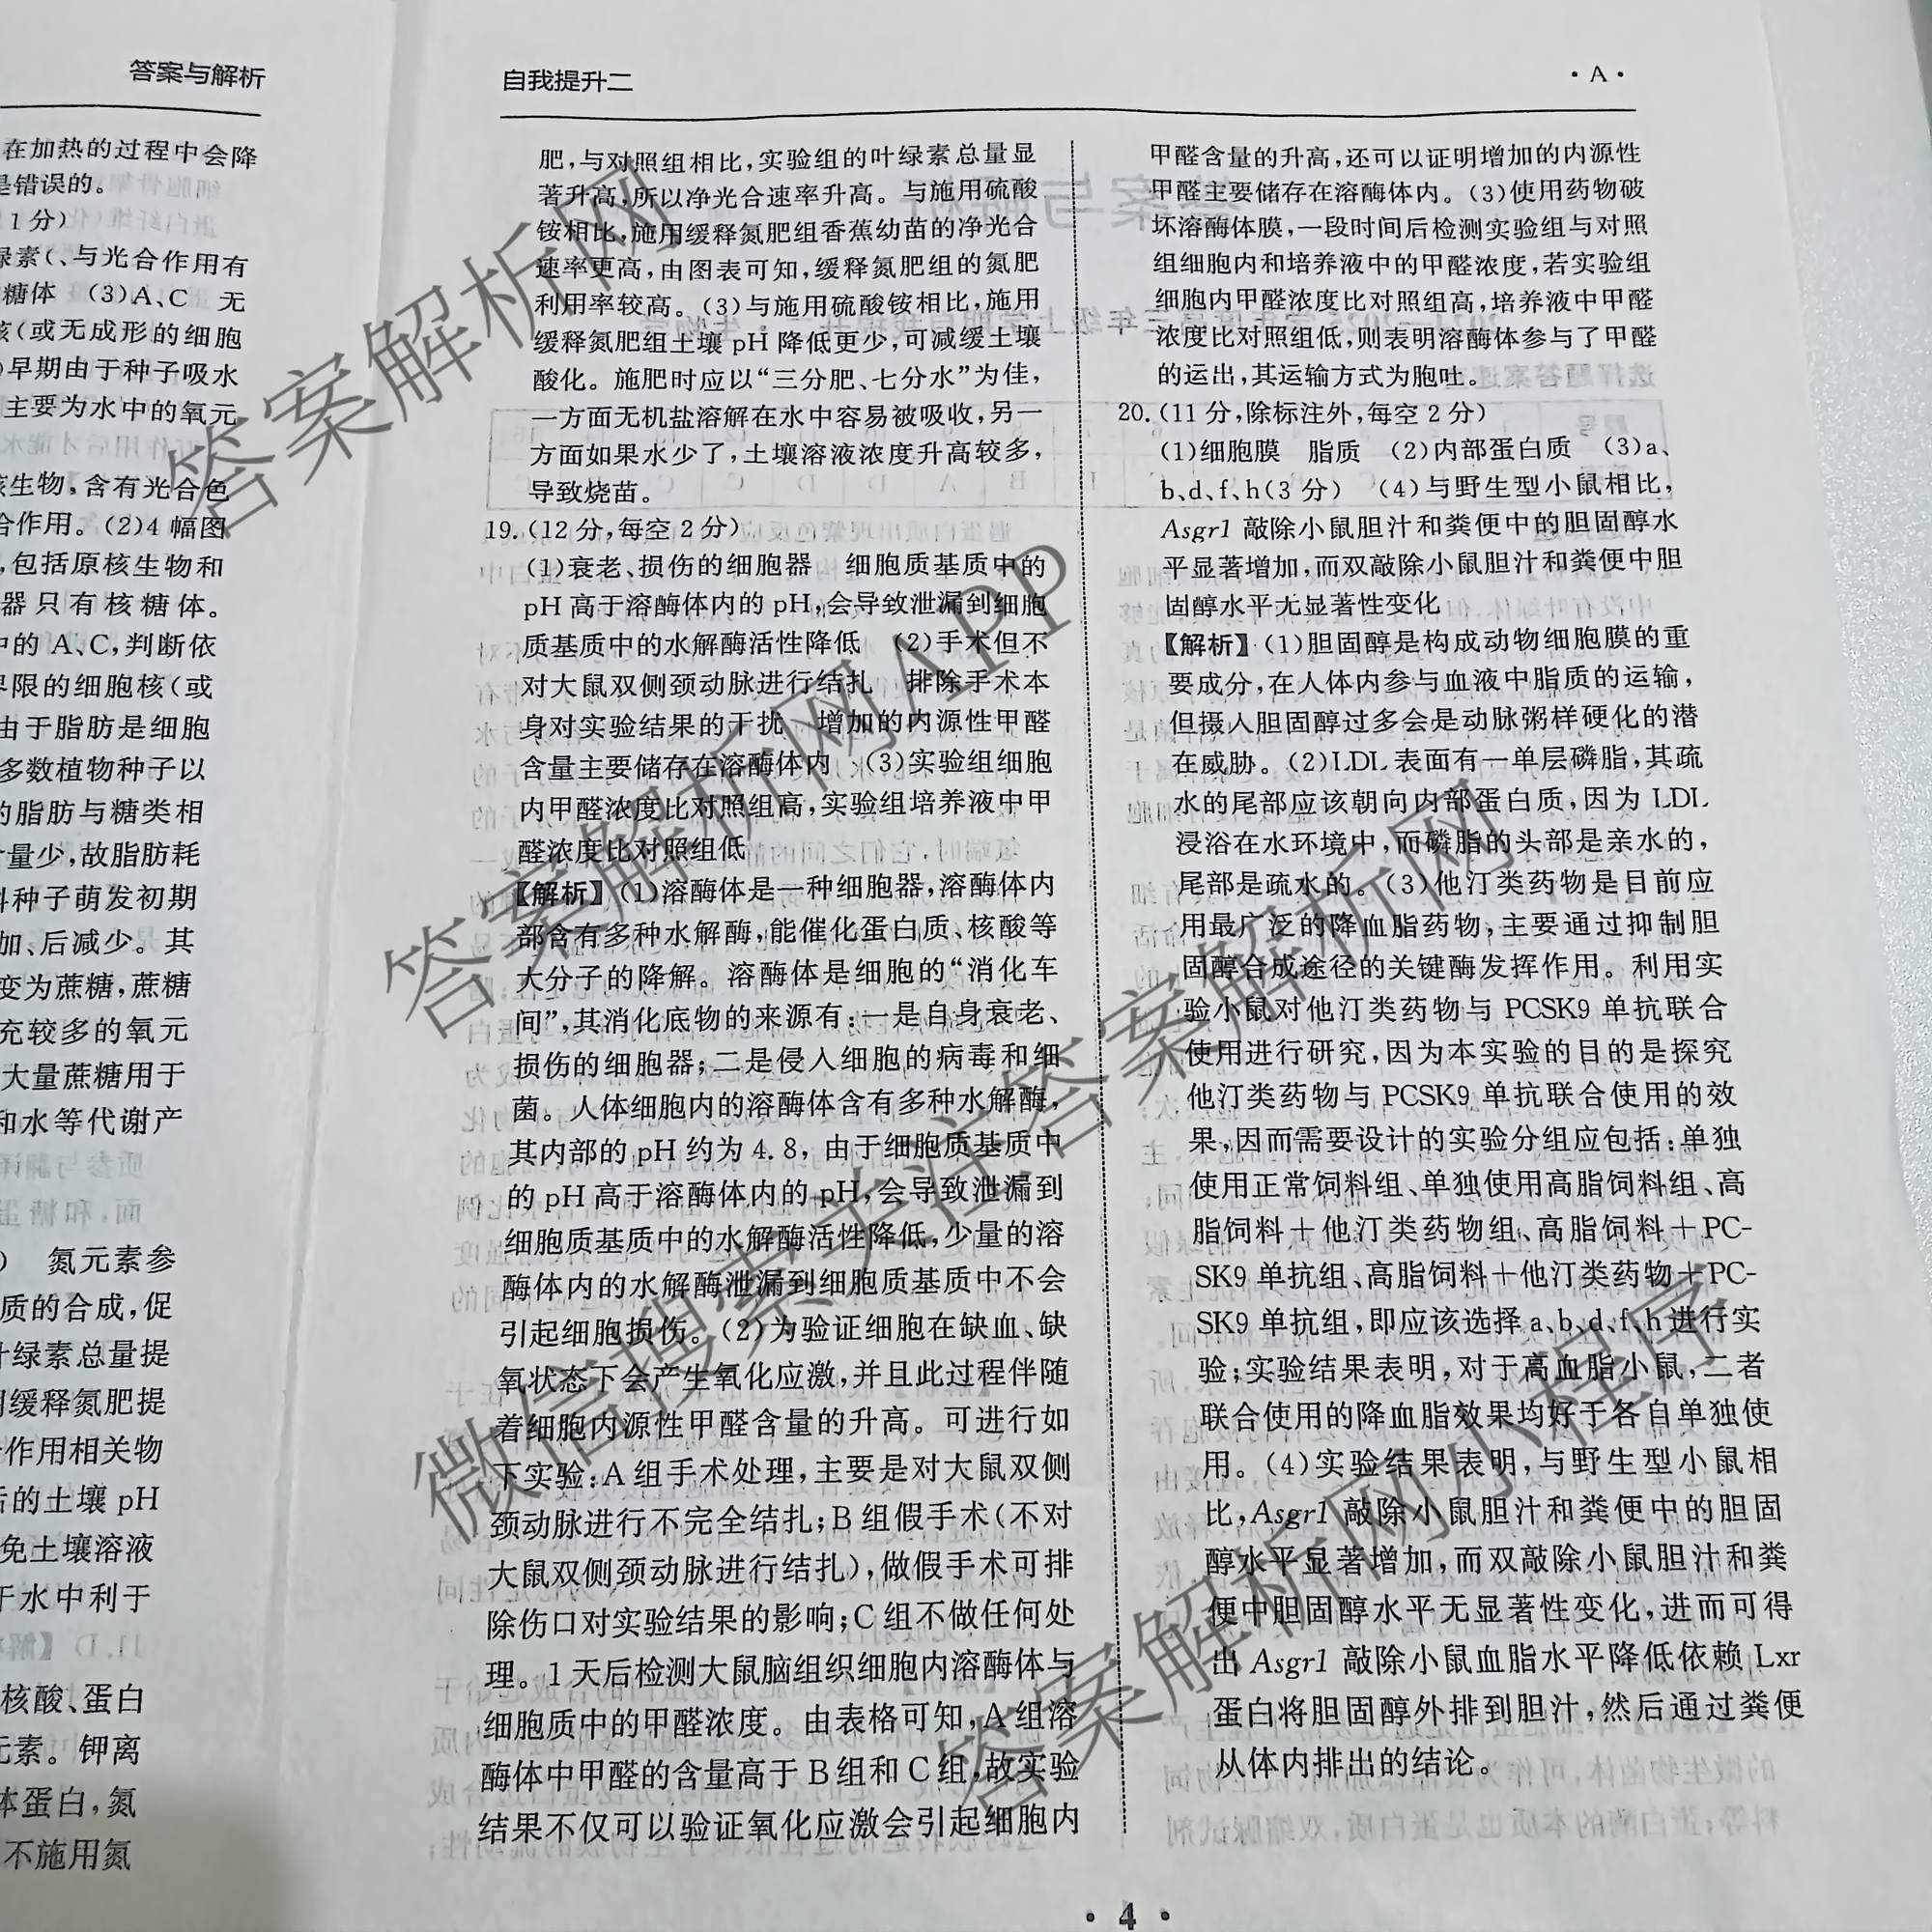 答案与解析
在加热的过程中会降
是错误的。
1分)
绿素(、与光合作用有
糖体 (3)A、C 无
核(或无成形的细胞
)早期由于种子吸水
主要为水中的氧元
核生物,含有光合色
合作用。(2)4幅图
,包括原核生物和
器只有核糖体。
中的A、C,判断依
界限的细胞核(或
由于脂肪是细胞
多数植物种子以
的脂肪与糖类相
量少,故脂肪耗
料种子萌发初期
加、后减少。其
变为蔗糖,蔗糖
充较多的氧元
大量蔗糖用于
和水等代谢产
) 氮元素参
质的合成,促
叶绿素总量提
用缓释氮肥提
作用相关物
后的土壤pH
免土壤溶液
于水中利于
核酸、蛋白
元素。钾离
体蛋白,氮
不施用氮
自我提升二
·A·
肥,与对照组相比,实验组的叶绿素总量显
著升高,所以净光合速率升高。与施用硫酸
铵相比,施用缓释氮肥组香蕉幼苗的净光合
速率更高,由图表可知,缓释氮肥组的氮肥
利用率较高。(3)与施用硫酸铵相比,施用
缓释氮肥组土壤pH降低更少,可减缓土壤
酸化。施肥时应以“三分肥、七分水”为佳,
一方面无机盐溶解在水中容易被吸收,另一
方面如果水少了,土壤溶液浓度升高较多,
导致烧苗。
19.(12分,每空2分)
(1)衰老、损伤的细胞器 细胞质基质中的
pH高于溶酶体内的pH,会导致泄漏到细胞
质基质中的水解酶活性降低 (2)手术但不
对大鼠双侧颈动脉进行结扎 排除手术本
身对实验结果的干扰 增加的内源性甲醛
含量主要储存在溶酶体内 (3)实验组细胞
内甲醛浓度比对照组高,实验组培养液中甲
醛浓度比对照组低
【解析】(1)溶酶体是一种细胞器,溶酶体内
部含有多种水解酶,能催化蛋白质、核酸等
大分子的降解。溶酶体是细胞的“消化车
间”,其消化底物的来源有:一是自身衰老、
损伤的细胞器;二是侵入细胞的病毒和细
菌。人体细胞内的溶酶体含有多种水解酶,
其内部的pH约为4.8,由于细胞质基质中
的pH高于溶酶体内的pH,会导致泄漏到
细胞质基质中的水解酶活性降低,少量的溶
酶体内的水解酶泄漏到细胞质基质中不会
引起细胞损伤。(2)为验证细胞在缺血、缺
氧状态下会产生氧化应激,并且此过程伴随
着细胞内源性甲醛含量的升高。可进行如
下实验:A组手术处理,主要是对大鼠双侧
颈动脉进行不完全结扎;B组假手术(不对
大鼠双侧颈动脉进行结扎),做假手术可排
除伤口对实验结果的影响;C组不做任何处
理。1天后检测大鼠脑组织细胞内溶酶体与
细胞质中的甲醛浓度。由表格可知,A组溶
酶体中甲醛的含量高于B组和C组,故实验
结果不仅可以验证氧化应激会引起细胞内
甲醛含量的升高,还可以证明增加的内源性
甲醛主要储存在溶酶体内。(3)使用药物破
坏溶酶体膜,一段时间后检测实验组与对照
组细胞内和培养液中的甲醛浓度,若实验组
细胞内甲醛浓度比对照组高,培养液中甲醛
浓度比对照组低,则表明溶酶体参与了甲醛
的运出,其运输方式为胞吐。
20.(11分,除标注外,每空2分)
(1)细胞膜 脂质 (2)内部蛋白质 (3)a、
b、d、f、h(3分) (4)与野生型小鼠相比,
Asgr1敲除小鼠胆汁和粪便中的胆固醇水
平显著增加,而双敲除小鼠胆汁和粪便中胆
固醇水平无显著性变化
【解析】(1)胆固醇是构成动物细胞膜的重
要成分,在人体内参与血液中脂质的运输,
但摄入胆固醇过多会是动脉粥样硬化的潜
在威胁。(2)LDL表面有一单层磷脂,其疏
水的尾部应该朝向内部蛋白质,因为LDL
浸浴在水环境中,而磷脂的头部是亲水的,
尾部是疏水的。(3)他汀类药物是目前应
用最广泛的降血脂药物,主要通过抑制胆
固醇合成途径的关键酶发挥作用。利用实
验小鼠对他汀类药物与PCSK9单抗联合
使用进行研究,因为本实验的目的是探究
他汀类药物与PCSK9单抗联合使用的效
果,因而需要设计的实验分组应包括:单独
使用正常饲料组、单独使用高脂饲料组、高
脂饲料+他汀类药物组、高脂饲料+PC-
SK9单抗组、高脂饲料+他汀类药物+PC-
SK9单抗组,即应该选择a、b、d、f、h进行实
验;实验结果表明,对于高血脂小鼠,二者
联合使用的降血脂效果均好于各自单独使
用。(4)实验结果表明,与野生型小鼠相
比,Asgr1敲除小鼠胆汁和粪便中的胆固
醇水平显著增加,而双敲除小鼠胆汁和粪
便中胆固醇水平无显著性变化,进而可得
出Asgr1敲除小鼠血脂水平降低依赖Lxr
蛋白将胆固醇外排到胆汁,然后通过粪便
从体内排出的结论。
·4·
答案解析网
答案解析网APP
微信搜索关注答案解析网
答案解析网小程序